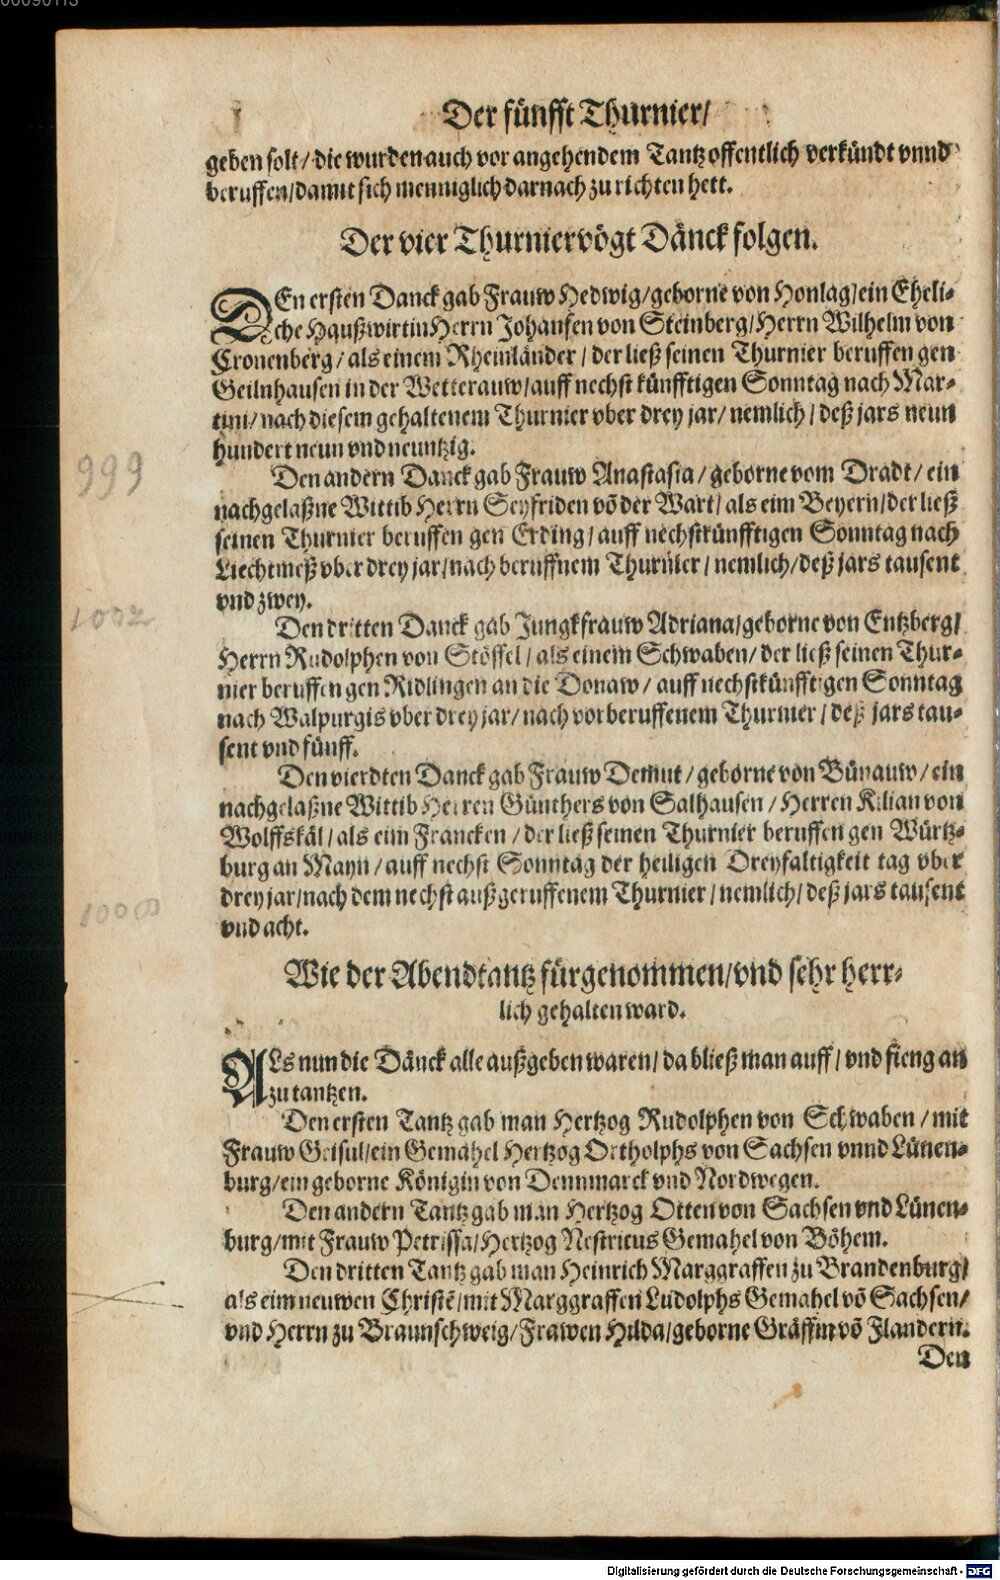 00090113
Der fünfft Thurnier/
geben solt/ die wurden auch vor angehendem Tantz offentlich verkündt vnnd
beruffen/ damit sich menniglich darnach zu richten hett.
Der vier Thurniervögt Dänck folgen.
DEn ersten Danck gab Frauw Hedwig/ geborne von Honlag/ ein Eheli-
che Haußwirtin Herrn Johansen von Steinberg/ Herrn Wilhelm von
Cronenberg/ als einem Rheinländer/ der ließ seinen Thurnier beruffen gen
Geilnhausen in der Wetterauw/ auff nechst künfftigen Sonntag nach Mar-
tini/ nach diesem gehaltenem Thurnier vber drey jar/ nemlich/ deß jars neun
hundert neun vnd neuntzig.
999
Den andern Danck gab Frauw Anastasia/ geborne vom Dradt/ ein
nachgelaßne Wittib Herrn Seyfriden võ der Wart/ als eim Beyern/ der ließ
seinen Thurnier beruffen gen Erding/ auff nechstkünfftigen Sonntag nach
Liechtmeß vber drey jar/ nach beruffnem Thurnier/ nemlich/ deß jars tausent
vnd zwey.
1002
Den dritten Danck gab Jungkfrauw Adriana/ geborne von Entzberg/
Herrn Rudolphen von Stöffel/ als einem Schwaben/ der ließ seinen Thur-
nier beruffen gen Ridlingen an die Donaw/ auff nechstkünfftigen Sonntag
nach Walpurgis vber drey jar/ nach vorberuffenem Thurnier/ deß jars tau-
sent vnd fünff.
Den vierdten Danck gab Frauw Demut/ geborne von Bünauw/ ein
nachgelaßne Wittib Herren Günthers von Salhausen/ Herren Kilian von
Wolffskäl/ als eim Francken/ der ließ seinen Thurnier beruffen gen Würtz-
burg an Mayn/ auff nechst Sonntag der heiligen Dreyfaltigkeit tag vber
drey jar/ nach dem nechst außgeruffenem Thurnier/ nemlich/ deß jars tausent
vnd acht.
1008
Wie der Abendtantz fürgenommen/ vnd sehr herr-
lich gehalten ward.
ALs nun die Dänck alle außgeben waren/ da bließ man auff/ vnd fieng an
zu tantzen.
Den ersten Tantz gab man Hertzog Rudolphen von Schwaben/ mit
Frauw Geisul/ ein Gemahel Hertzog Ortholphs von Sachsen vnnd Lünen-
burg/ ein geborne Königin von Dennmarck vnd Nordwegen.
Den andern Tantz gab man Hertzog Otten von Sachsen vnd Lünen-
burg/ mit Frauw Petrissa/ Hertzog Nestricus Gemahel von Böhem.
Den dritten Tantz gab man Heinrich Marggraffen zu Brandenburg/
als eim neuwen Christẽ/ mit Marggraffen Ludolphs Gemahel võ Sachsen/
vnd Herrn zu Braunschweig/ Frawen Hilda/ geborne Gräffin võ Flandern.
Den
Digitalisierung gefördert durch die Deutsche Forschungsgemeinschaft - DFG